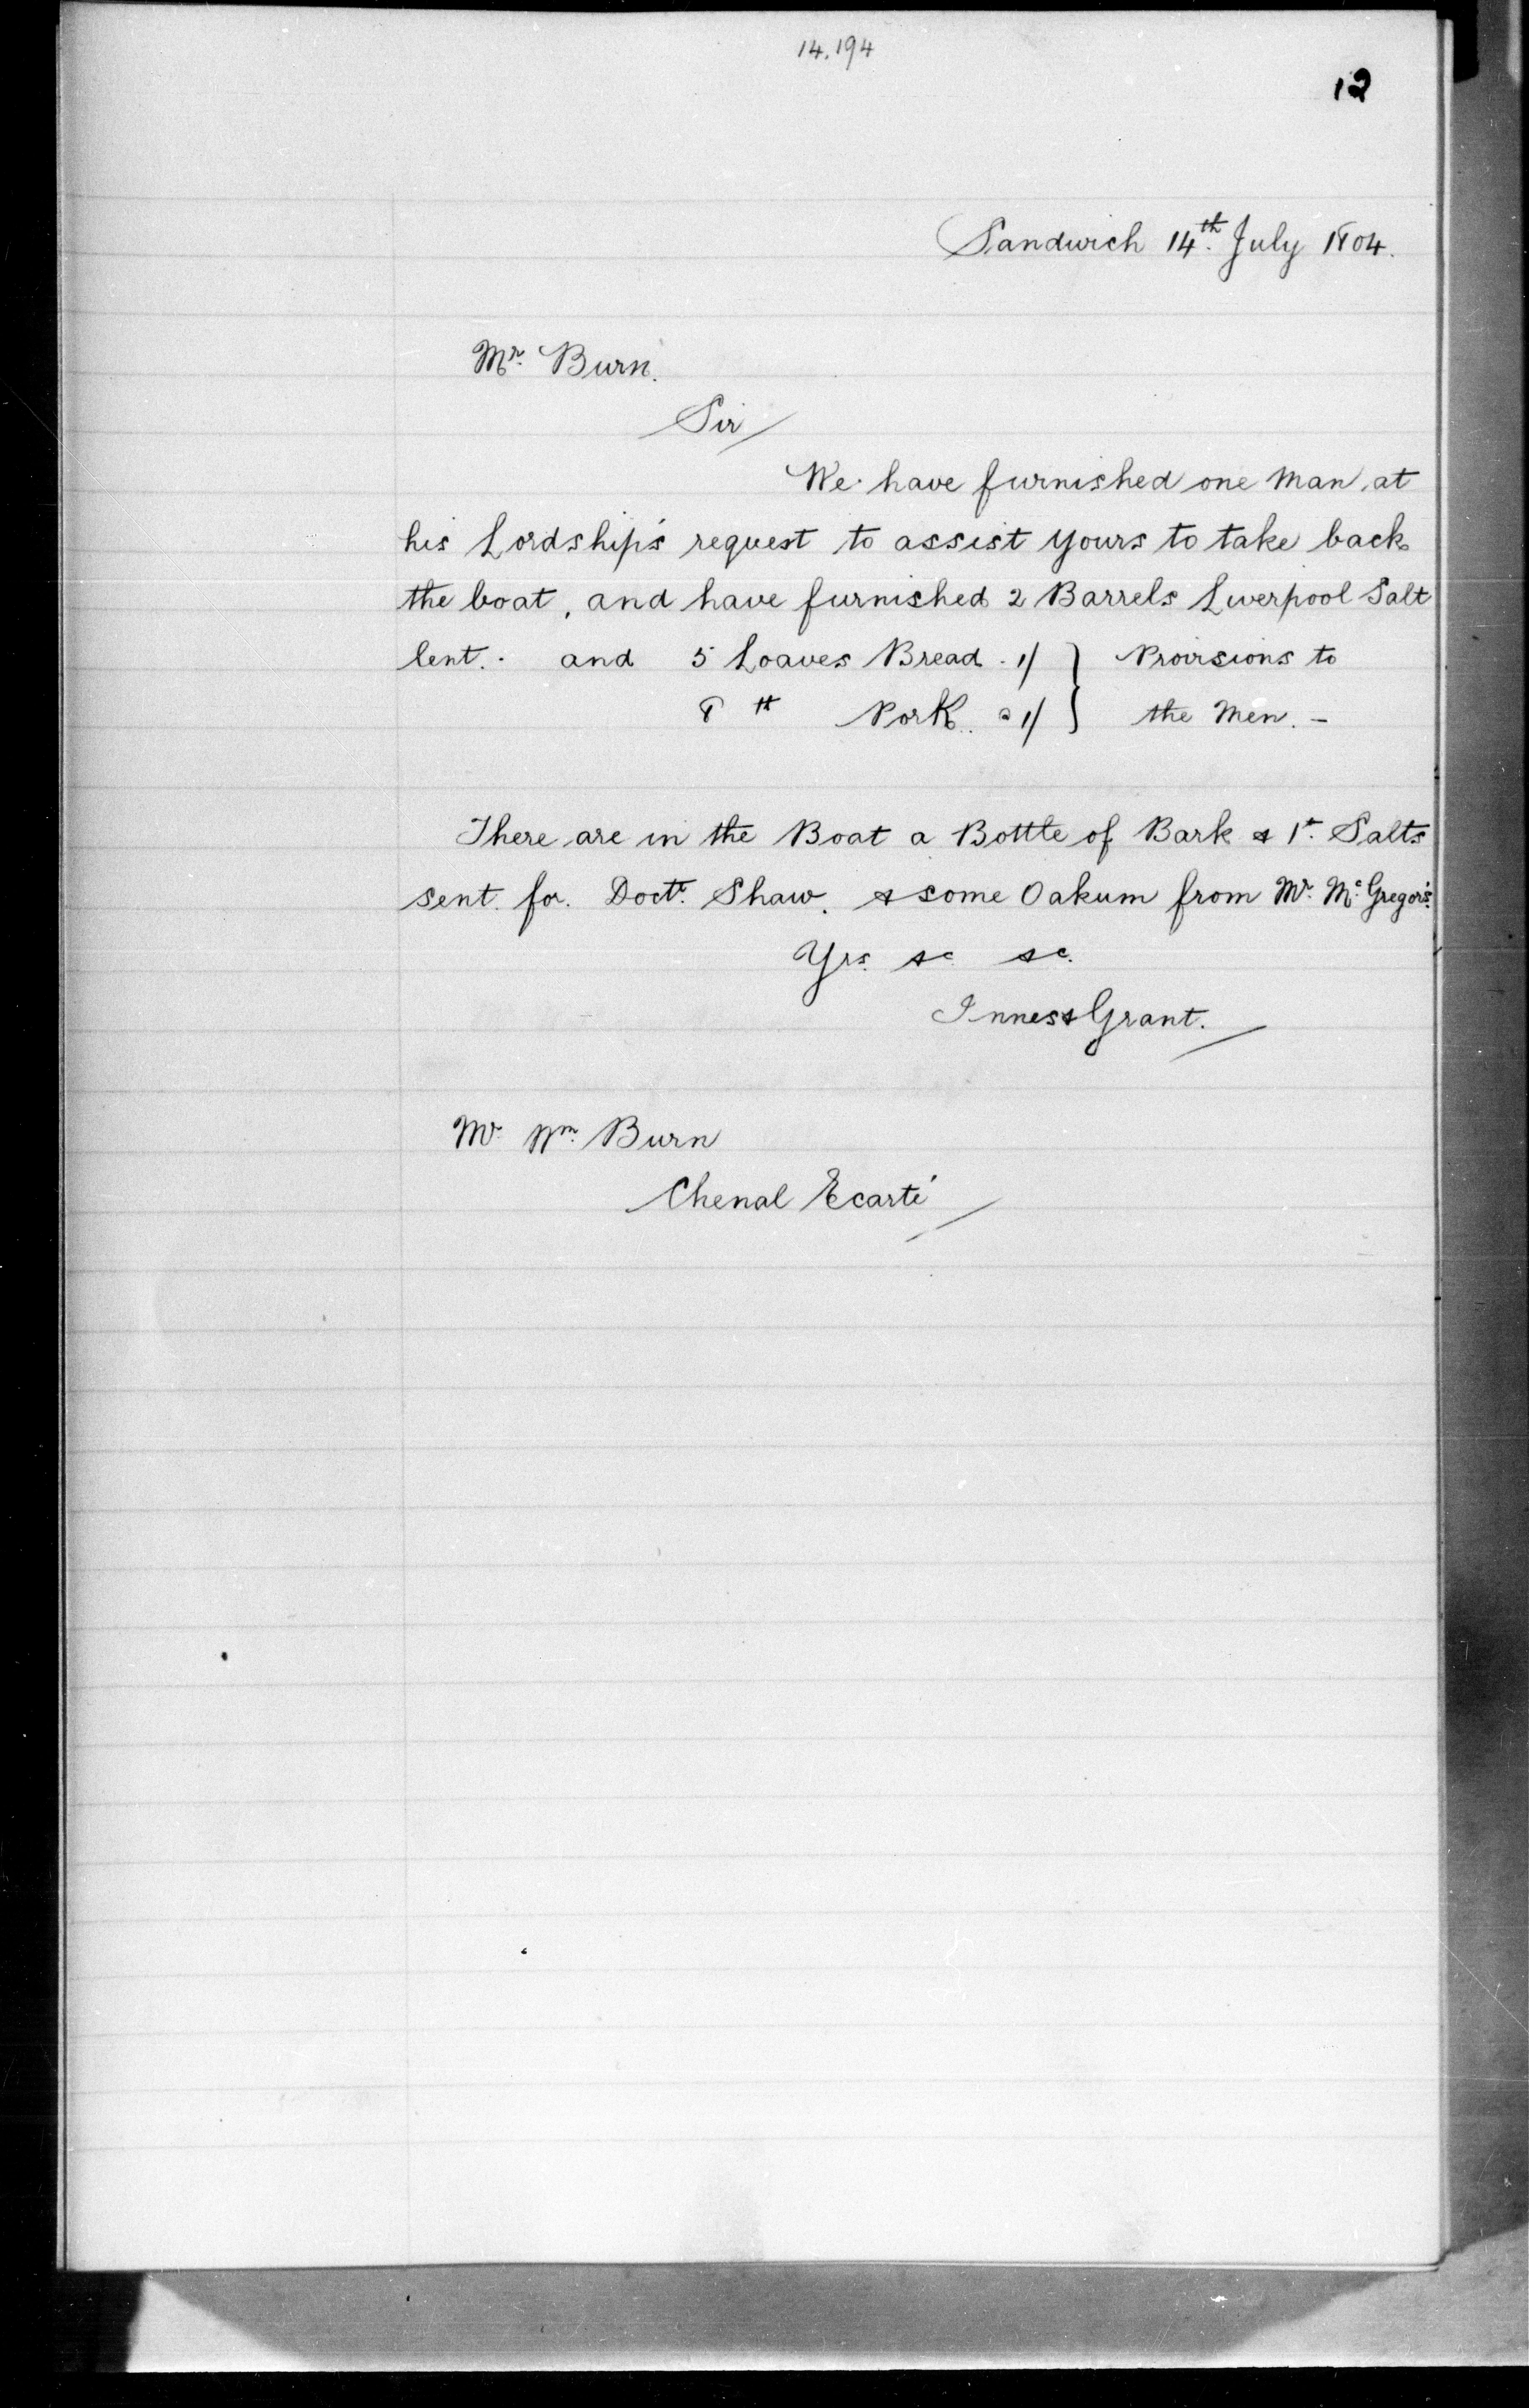 14,194
12
Sandwich 14th. July 1804.
Mr. Burn.
Sir/
We have furnished one Man, at
his Lordship's request to assist yours to take back
the boat, and have furnished 2 Barrels Liverpool Salt
lent. - and 5 Loaves Bread . 1/ } Provisions to
8 lb Pork . @ 1/ } the Men. -
There are in the Boat a Bottle of Bark & 1 Salts
sent for Doctr. Shaw. & some Oakum from Mr. McGregor's.
Yrs. &c &c.
Innes & Grant.
Mr. Wm. Burn
Chenal Ecarté